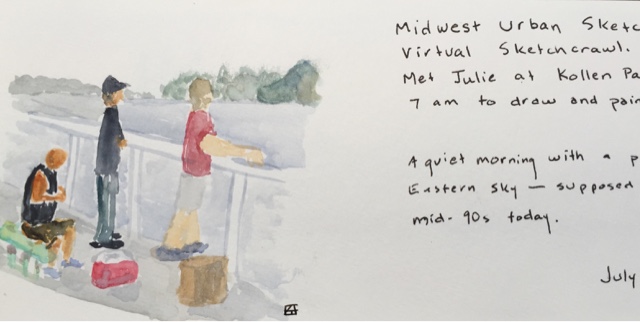 Midwest Urban Sketc
Virtual Sketchcrawl.
Met Julie at Kollen Pa
7 am to draw and pain
A quiet morning with a p
Eastern sky — supposed
mid-90s today.
July